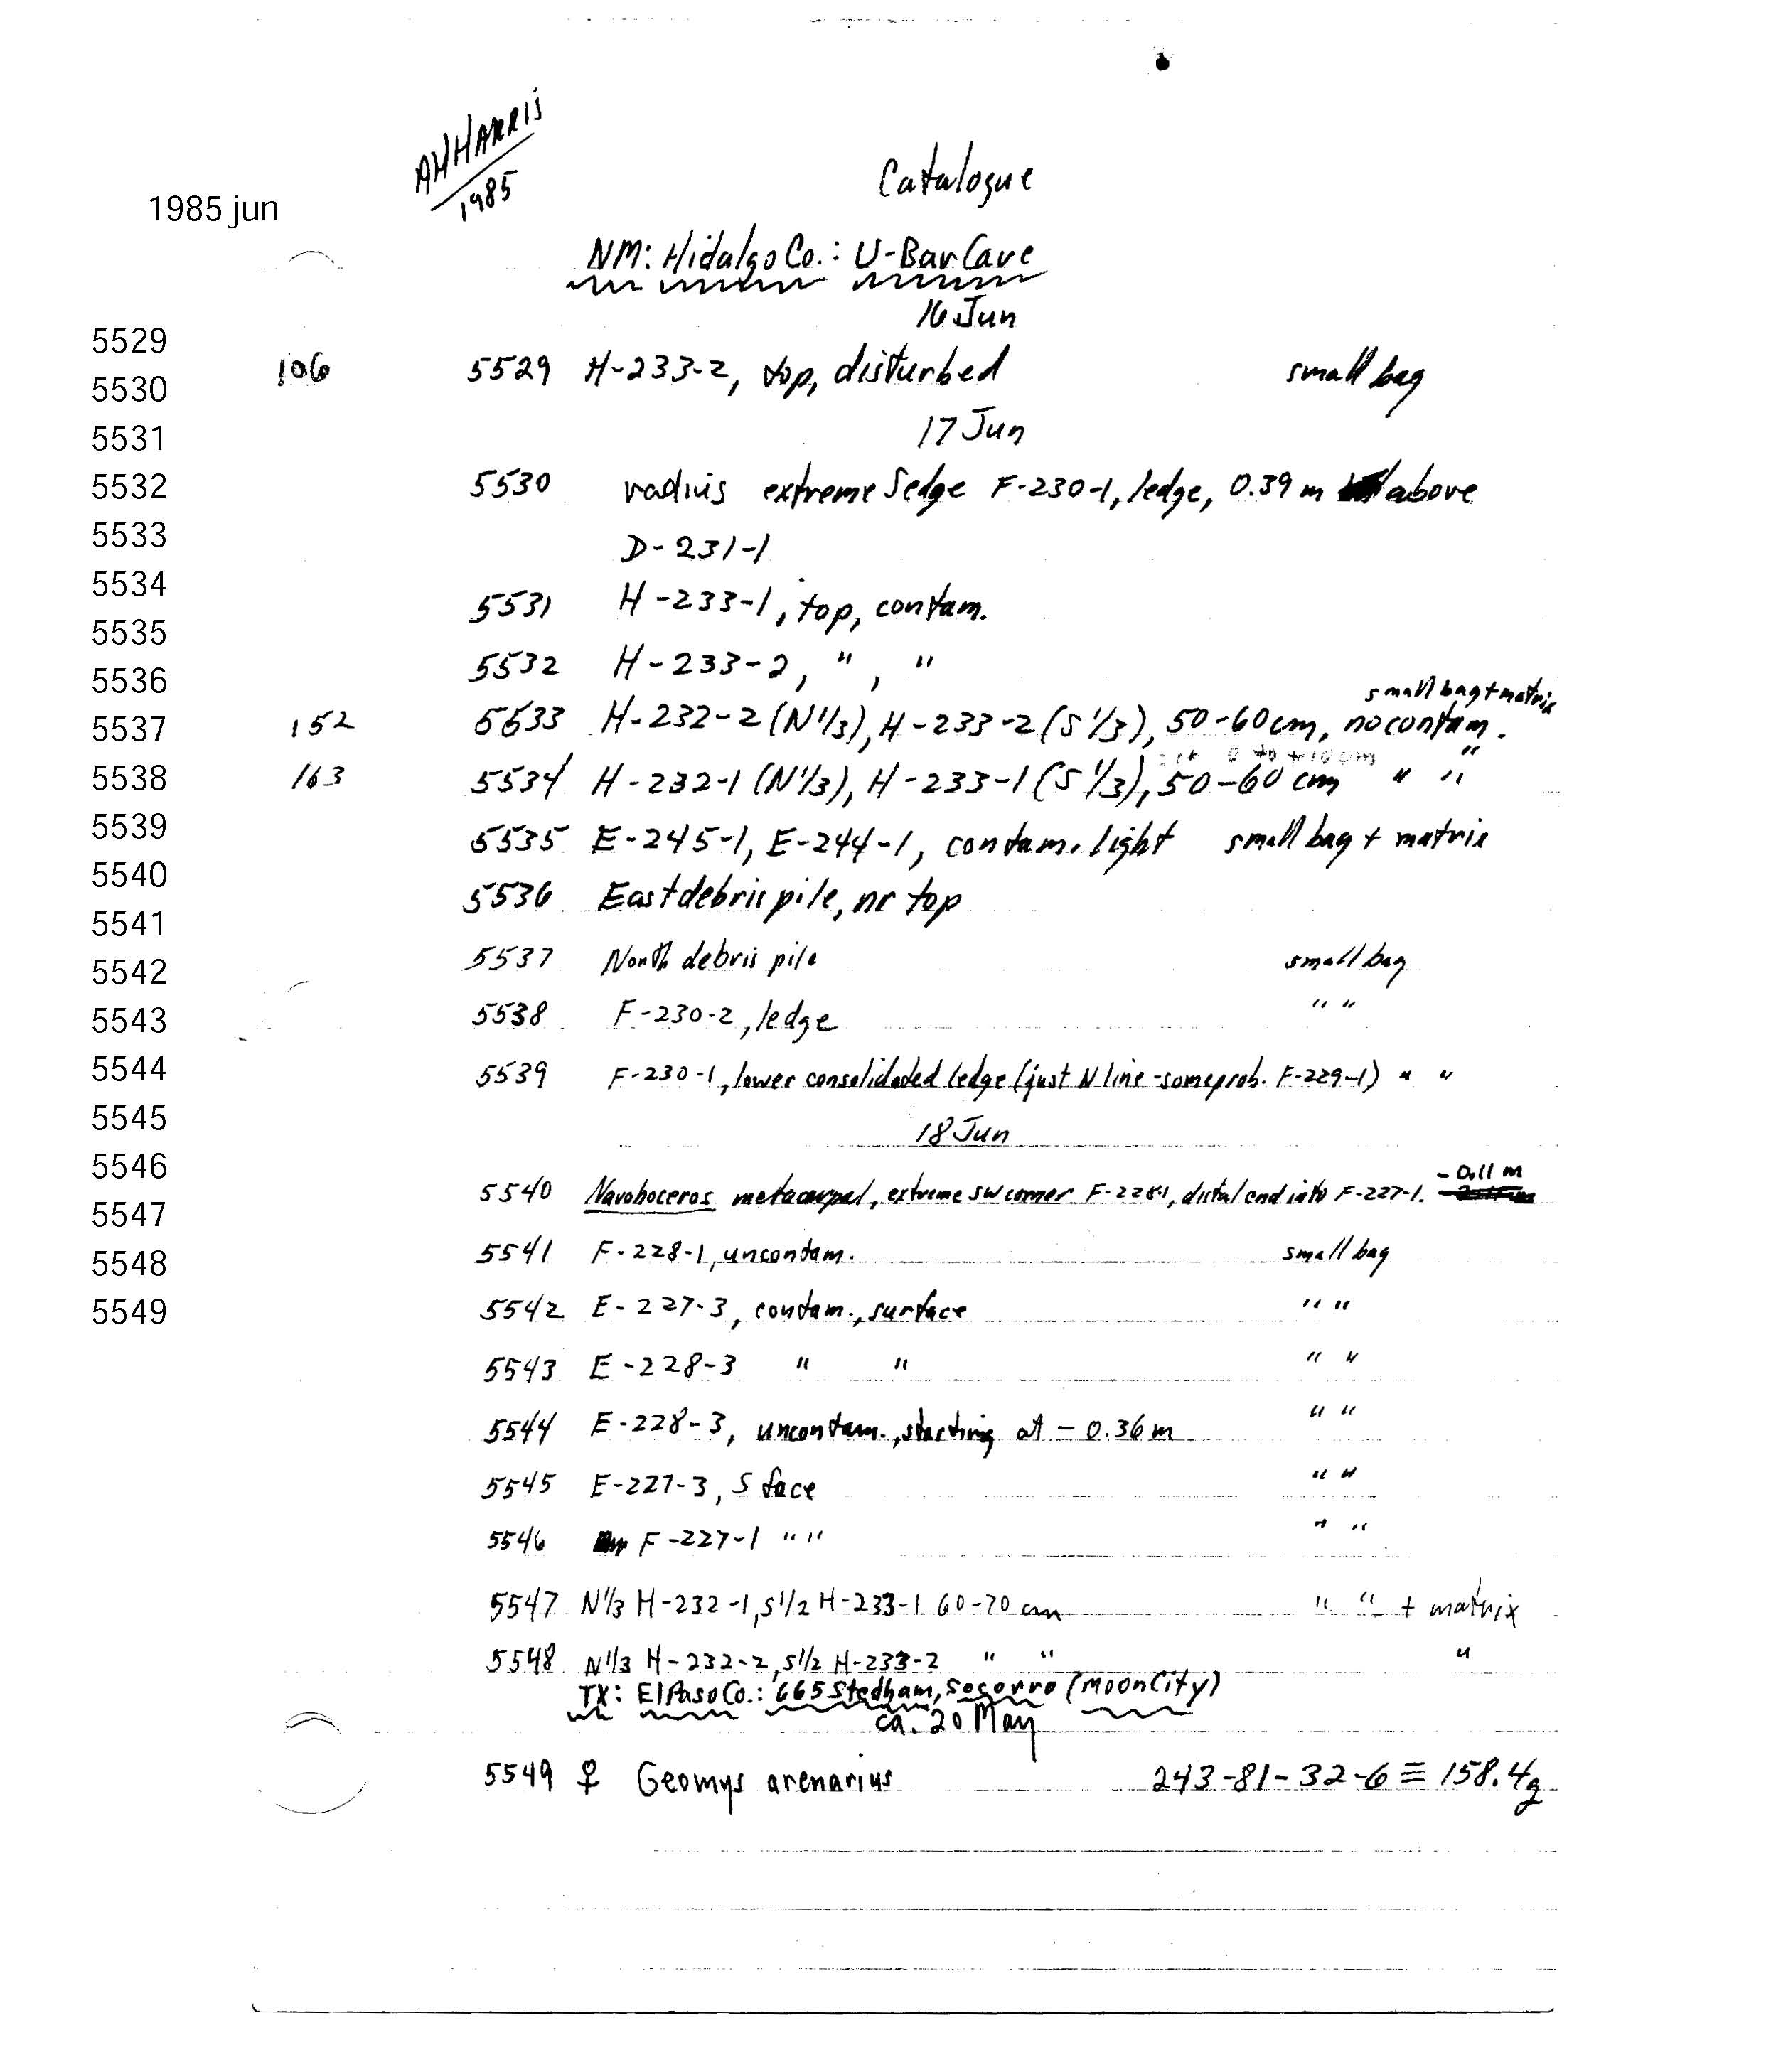 AHHARRIS
1985
Catalogue
1985 jun
NM: Hidalgo Co.: U-Bar Cave
16 Jun
5529
106 5529 H-233-2, top, disturbed small bag
5530
17 Jun
5531
5532 5530 radius extreme S edge F-230-1, ledge, 0.39 m above
5533 D-231-1
5534
5531 H-233-1, top, contam.
5535
5532 H-233-2, " , "
5536
small bag + matrix
5537 152 5533 H-232-2 (N 1/3), H-233-2 (S 1/3), 50-60 cm, no contam.
0 to +10 cm "
5538 163 5534 H-232-1 (N 1/3), H-233-1 (S 1/3), 50-60 cm " "
5539 5535 E-245-1, E-244-1, contam. light small bag + matrix
5540
5536 East debris pile, nr top
5541
5542 5537 North debris pile small bag
5543 5538 F-230-2, ledge " "
5544 5539 F-230-1, lower consolidated ledge (just N line - some prob. F-229-1) " "
5545 18 Jun
5546
- 0.11 m
5540 Navahoceros metacarpal, extreme SW corner F-228-1, distal end into F-227-1.
5547
5548 5541 F-228-1, uncontam. small bag
5549 5542 E-227-3, contam., surface " "
5543 E-228-3 " " " "
5544 E-228-3, uncontam., starting at - 0.36 m " "
5545 E-227-3, S face " "
5546 F-227-1 " " " "
5547 N 1/3 H-232-1, S 1/2 H-233-1 60-70 cm " " + matrix
5548 N 1/3 H-232-2, S 1/2 H-233-2 " " "
TX: El Paso Co.: 665 Stedham, Socorro (Moon City)
ca. 20 May
5549 ♀ Geomys arenarius 243-81-32-6 ≡ 158.4g